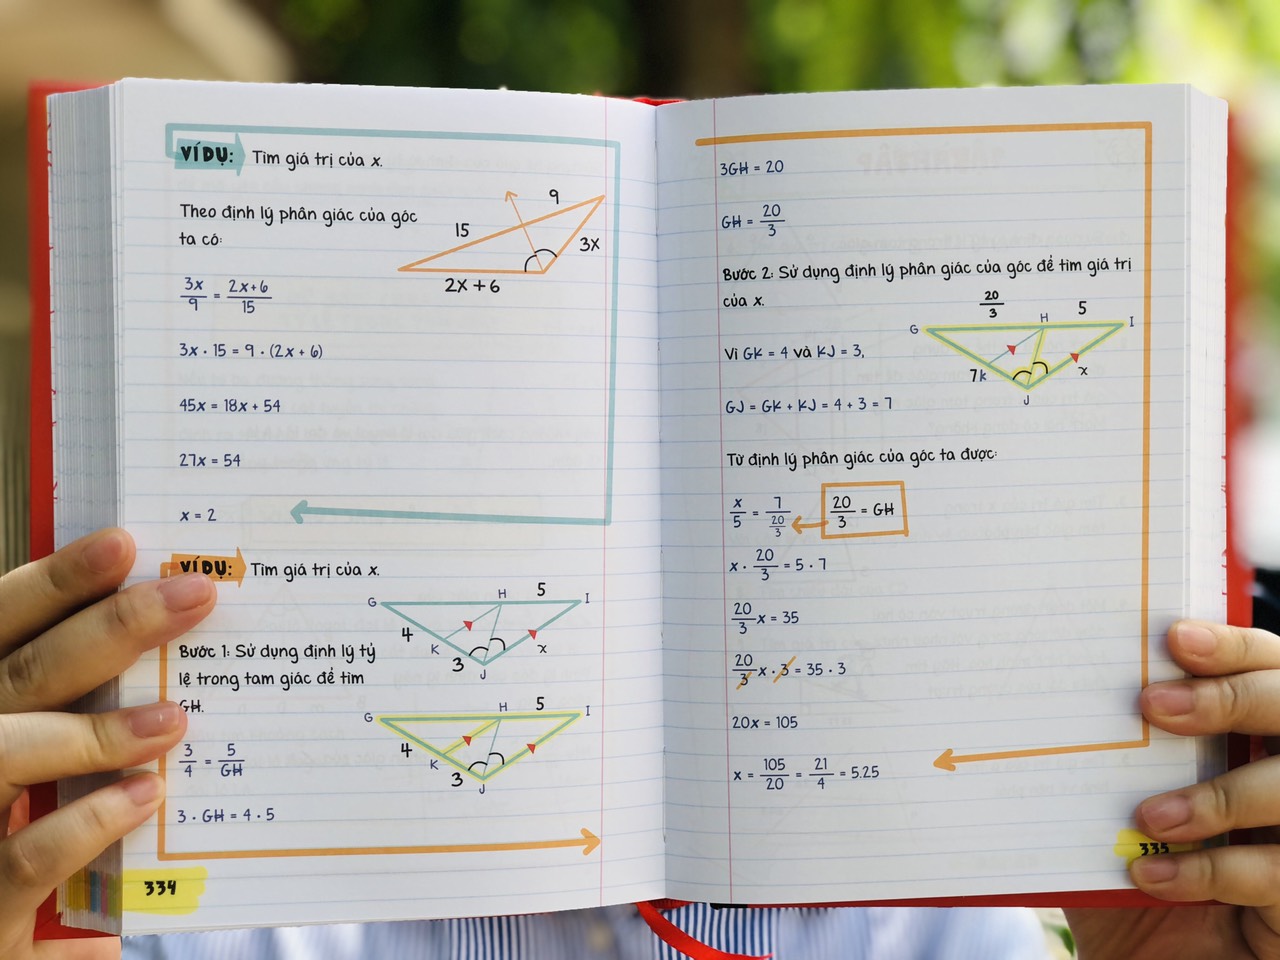 VÍ DỤ: Tìm giá trị của x.
Theo định lý phân giác của góc
ta có:
9
15
3x
2x + 6
3x/9 = 2x+6/15
3x · 15 = 9 · (2x + 6)
45x = 18x + 54
27x = 54
x = 2
VÍ DỤ: Tìm giá trị của x.
G H 5 I
4 K 3 J x
Bước 1: Sử dụng định lý tỷ
lệ trong tam giác để tìm
GH.
G H 5 I
4 K 3 J
3/4 = 5/GH
3 · GH = 4 · 5
334
3GH = 20
GH = 20/3
Bước 2: Sử dụng định lý phân giác của góc để tìm giá trị
của x.
20/3 5
G H I
7k J x
Vì GK = 4 và KJ = 3,
GJ = GK + KJ = 4 + 3 = 7
Từ định lý phân giác của góc ta được:
x/5 = 7/(20/3) 20/3 = GH
x · 20/3 = 5 · 7
20/3 x = 35
20/3 x · 3 = 35 · 3
20x = 105
x = 105/20 = 21/4 = 5.25
335